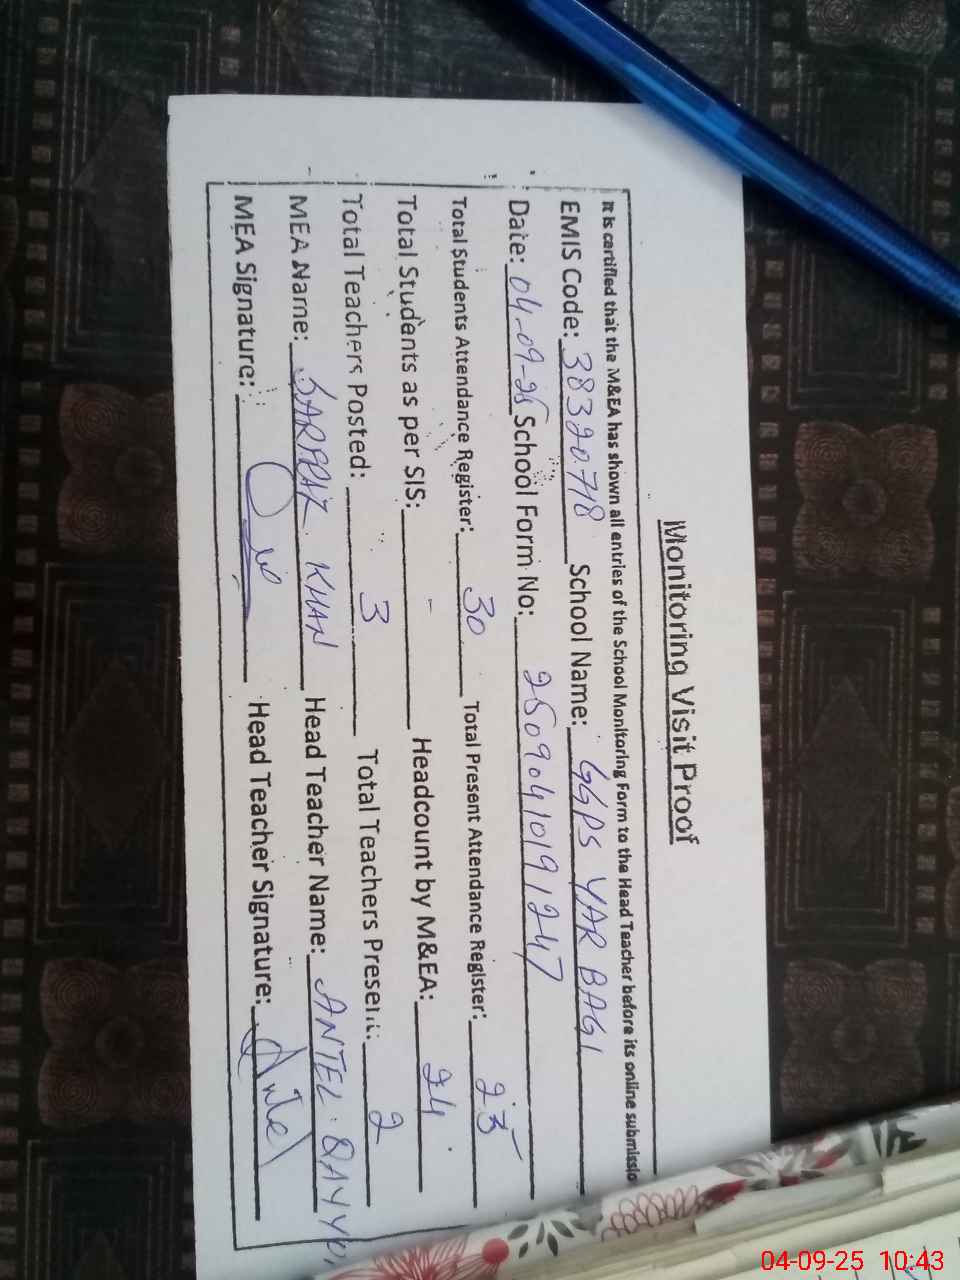 Monitoring Visit Proof
It is certified that the M&EA has shown all entries of the School Monitoring Form to the Head Teacher before its online submissio
EMIS Code: 38320718 School Name: GGPS YAR BAGI
Date: 04-09-25 School Form No: 25090410191247
Total Students Attendance Register: 30 Total Present Attendance Register: 25
Total Students as per SIS: - Headcount by M&EA: 24
Total Teachers Posted: 3 Total Teachers Present: 2
MEA Name: SARFRAZ KHAN Head Teacher Name: ANTEL. QAYYU
MEA Signature: Head Teacher Signature: Antel
04-09-25 10:43